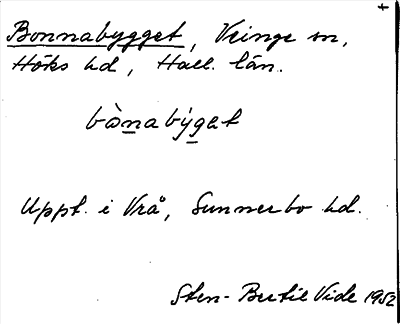 Bonnabygget, Veinge sn,
Höks hd, Hall. län.
bònabýget
Uppt. i Vrå, Sunnerbo hd.
Sten-Bertil Vide 1952